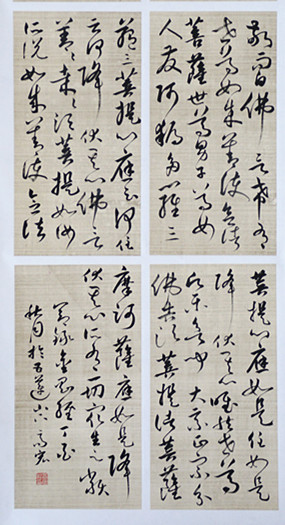 白佛言希有
世尊如来善護念諸
菩薩世尊男子善女
人發阿耨多羅三
藐三菩提心應云何住
云何降伏其心佛言
善哉善哉須菩提如汝
所說如来善護念諸
菩提心應如是住如是
降伏其心唯然世尊
願樂欲聞大乘正宗分
佛告須菩提諸菩薩
摩訶薩應如是降
伏其心所有一切眾生之類
節錄金剛經丁酉
秋月於古蓮